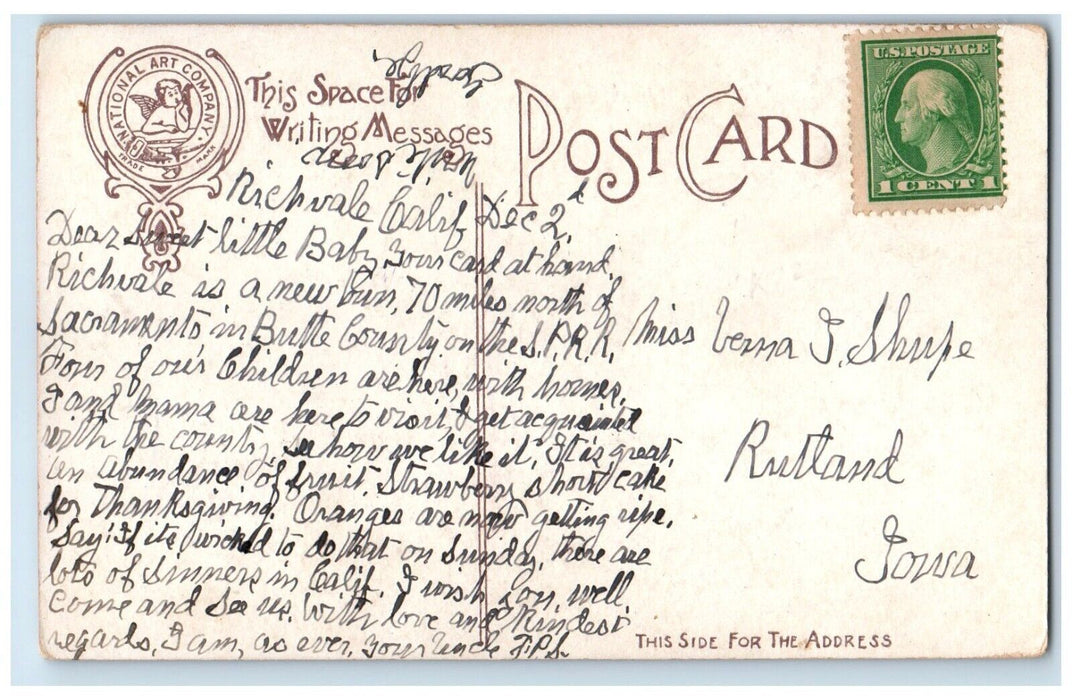 NATIONAL ART COMPANY
TRADE MARK
This Space For
Writing Messages
POST CARD
U.S. POSTAGE
1 CENT 1
Richvale Calif Dec 2d
Dear sweet little Baby Your card at hand,
Richvale is a new burg, 70 miles north of
Sacramento in Butte County on the S.P.R.R.
Four of our Children are here, with homes,
I and Mama are here to visit, & get acquainted
with the country, see how we like it, It is great,
an abundance of fruit, Strawberry short cake
for Thanksgiving. Oranges are now getting ripe.
Say! If its wicked to do that on Sunday, there are
lots of Sinners in Calif. I wish you well
come and See us. With love and Kindest
regards, I am, as ever, your Uncle F.P.S.
Miss Verna I. Shupe
Rutland
Iowa
THIS SIDE FOR THE ADDRESS